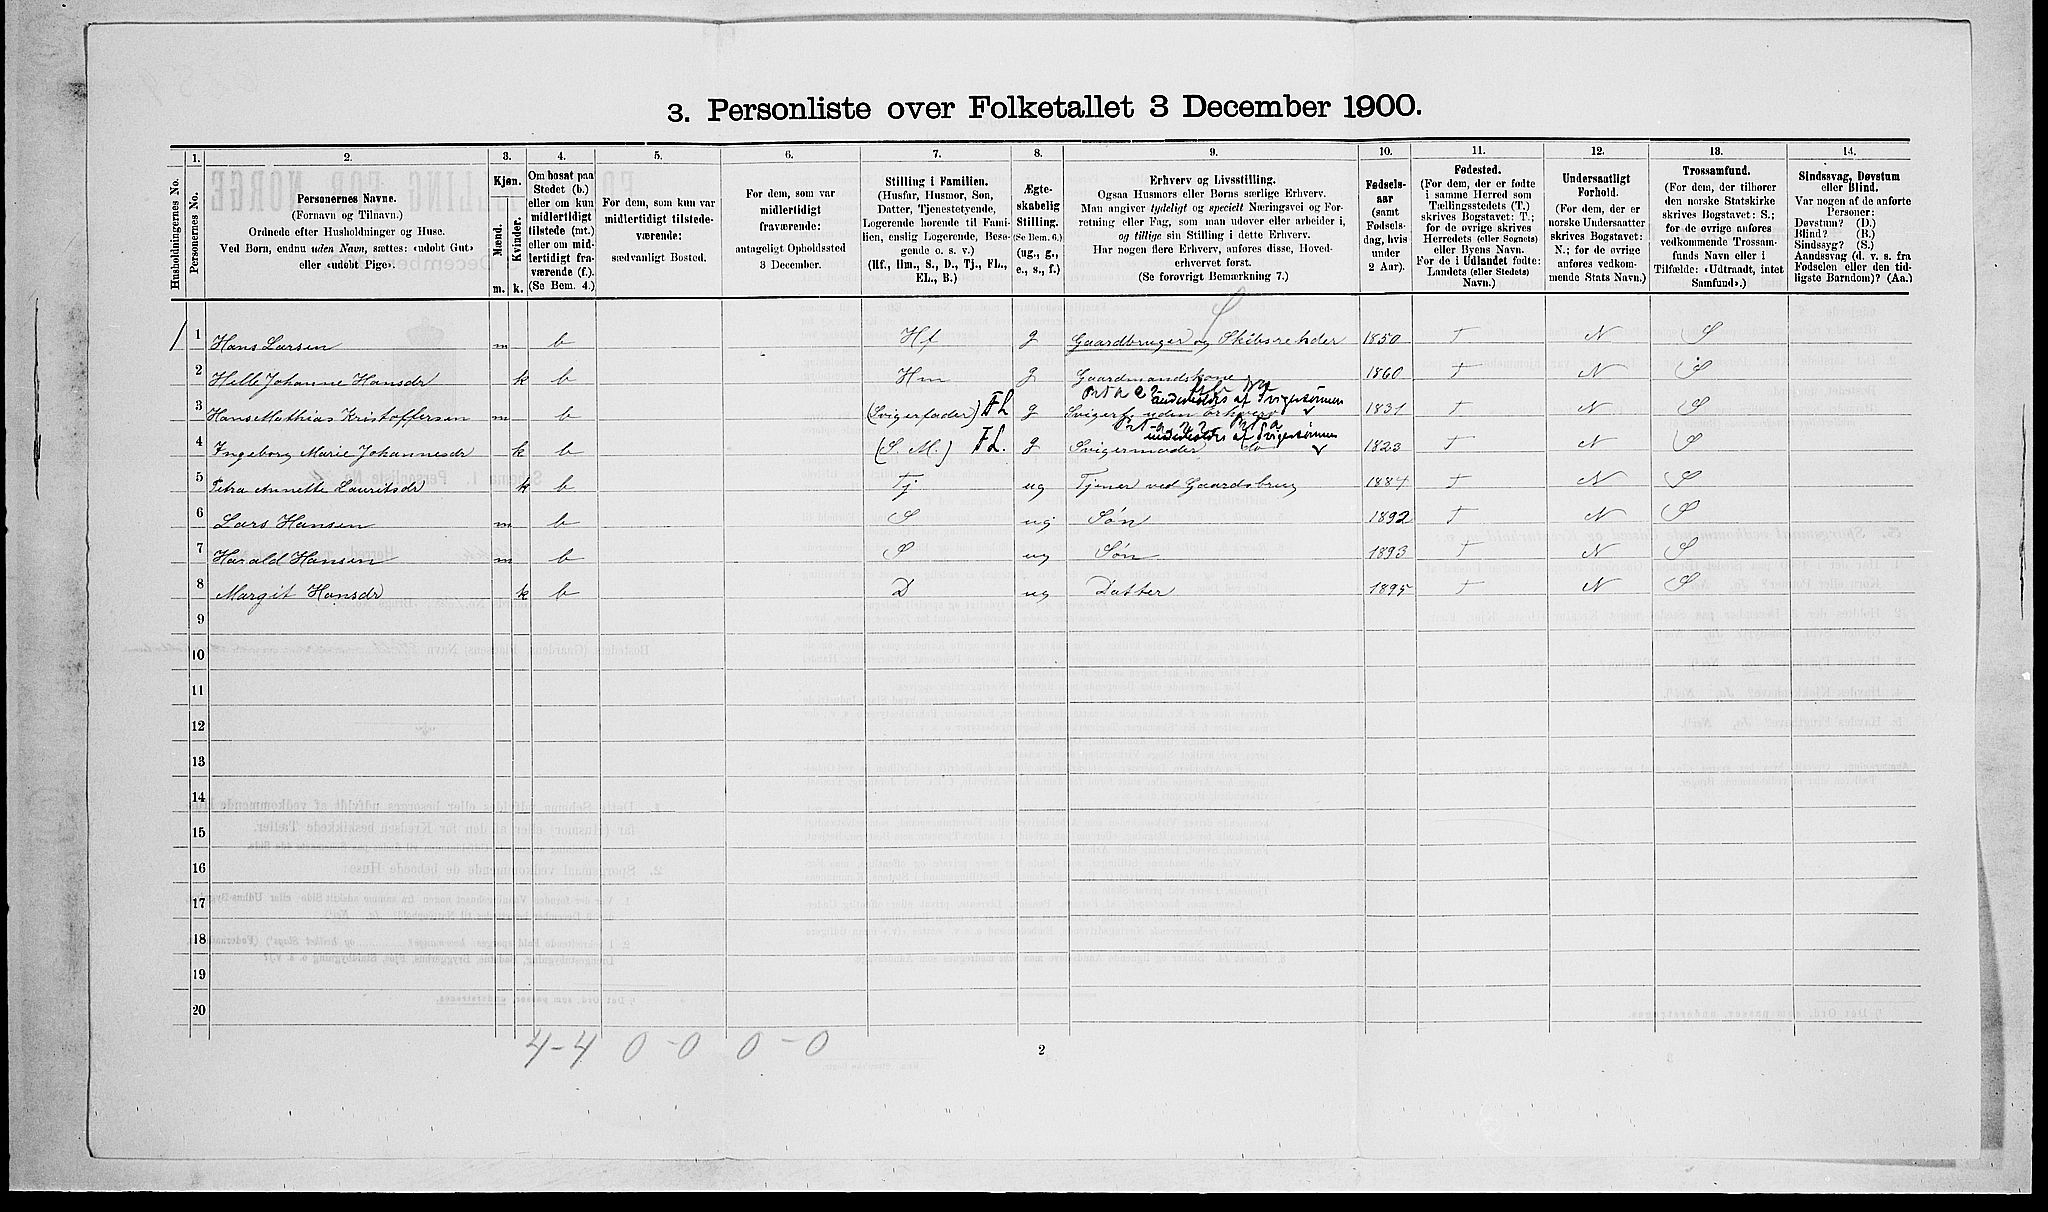 3. Personliste over Folketallet 3 December 1900.
Husholdningernes No.
1.
Personernes No.
2.
Personernes Navne.
(Fornavn og Tilnavn.)
Ordnede efter Husholdninger og Huse.
Ved Børn, endnu uden Navn, sættes: «udøbt Gut»
eller «udøbt Pige».
3.
Kjøn.
Mænd.
Kvinder.
m. k.
4.
Om bosat paa
Stedet (b.)
eller om kun
midlertidigt
tilstede (mt.)
eller om mid-
lertidigt fra-
værende (f.).
(Se Bem. 4.)
5.
For dem, som kun var
midlertidigt tilstede-
værende:
sædvanligt Bosted.
6.
For dem, som var
midlertidigt
fraværende:
antageligt Opholdssted
3 December.
7.
Stilling i Familien.
(Husfar, Husmor, Søn,
Datter, Tjenestetyende,
Logerende hørende til Fami-
lien, enslig Logerende, Besø-
gende o. s. v.)
(Hf., Hm., S., D., Tj., FL.,
EL., B.)
8.
Ægte-
skabelig
Stilling.
(Se Bem. 6.)
(ug., g.,
e., s., f.)
9.
Erhverv og Livsstilling.
Ogsaa Husmors eller Børns særlige Erhverv.
Man angiver tydeligt og specielt Næringsvei og For-
retning eller Fag, som man udøver eller arbeider i,
og tillige sin Stilling i dette Erhverv.
Har nogen flere Erhverv, anføres disse, Hoved-
erhvervet først.
(Se forøvrigt Bemærkning 7.)
10.
Fødsels-
aar
(samt
Fødsels-
dag, hvis
under
2 Aar).
11.
Fødested.
(For dem, der er fødte
i samme Herred som
Tællingsstedets (T.)
skrives Bogstavet: T.;
for de øvrige skrives
Herredets (eller Sognets)
eller Byens Navn.
For de i Udlandet fødte:
Landets (eller Stedets)
Navn.)
12.
Undersaatligt
Forhold.
(For dem, der er
norske Undersaatter
skrives Bogstavet:
N.; for de øvrige
anføres vedkom-
mende Stats Navn.)
13.
Trossamfund.
(For dem, der tilhører
den norske Statskirke
skrives Bogstavet: S.;
for de øvrige anføres
vedkommende Trossam-
funds Navn eller i
Tilfælde: «Udtraadt, intet
Samfund».)
14.
Sindssvag, Døvstum
eller Blind.
Var nogen af de anførte
Personer:
Døvstum? (D.)
Blind? (B.)
Sindssyg? (S.)
Aandssvag (d. v. s. fra
Fødselen eller den tid-
ligste Barndom)? (Aa.)
1 Hans Larsen m b Hf g Gaardbruger og Skibsrehder 1850 T N S
2 Helle Johanne Hansdr k b Hm g Gaardmandskone 1860 T N S
understøttes af Svigersønnen
3 Hans Mathias Kristoffersen m b (Svigerfader) FL g Svigerf. uden Erhverv 1831 T N S
understøttes af Svigersønnen
4 Ingeborg Marie Johannesdr k b (S. M.) FL. g Svigermoder do 1823 T N S
5 Petra Annette Lauritsdr k b Tj ug Tjener ved Gaardsbrug 1884 T N S
6 Lars Hansen m b S ug Søn 1892 T N S
7 Harald Hansen m b S ug Søn 1893 T N S
8 Margit Hansdr k b D ug Datter 1895 T N S
9
10
11
12
13
14
15
16
17
18
19
20
4-4 0-0 0-0
2